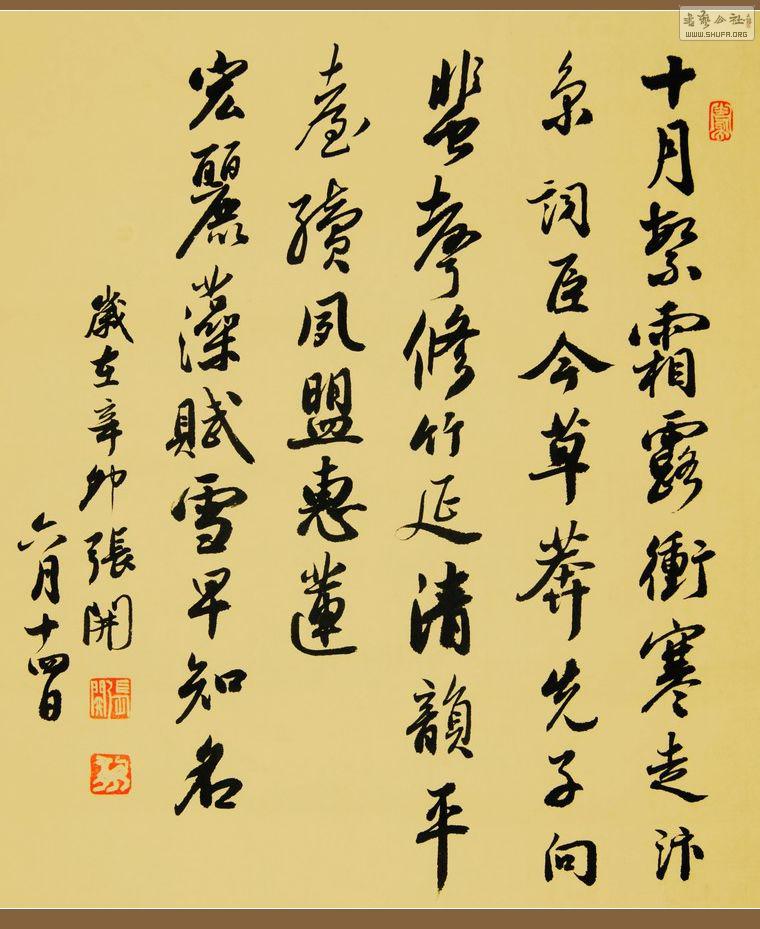 書藝公社
WWW.SHUFA.ORG
十月繁霜露衝寒走汴
京詞臣今草莽先子向
蜚聲修竹延清韻平
臺續夙盟惠蓮
宏麗藻賦雪早知名
歲在辛卯張開
六月十四日